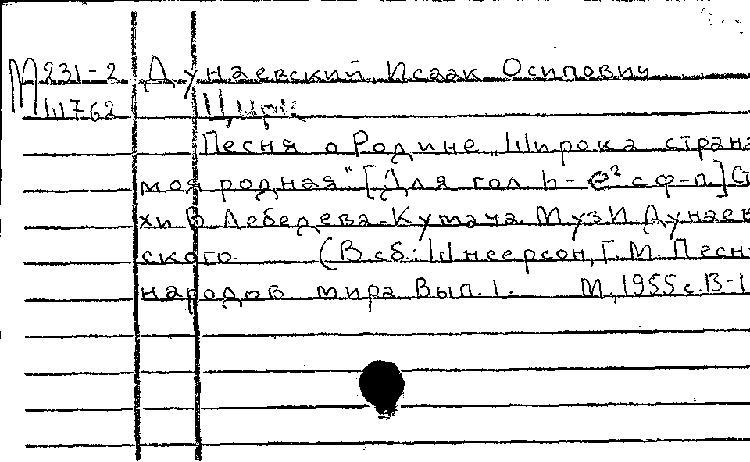 М231-2 Дунаевский, Исаак Осипович
Ш762 Цирк
Песня о Родине „Широка страна
моя родная" [Для гол. h-e² с ф-п.] Ст
хи В. Лебедева-Кумача. Муз. И. Дунаев
ского. (В сб.: Шнеерсон, Г. М. Песн
народов мира. Вып. 1. М., 1955 с. 13-1